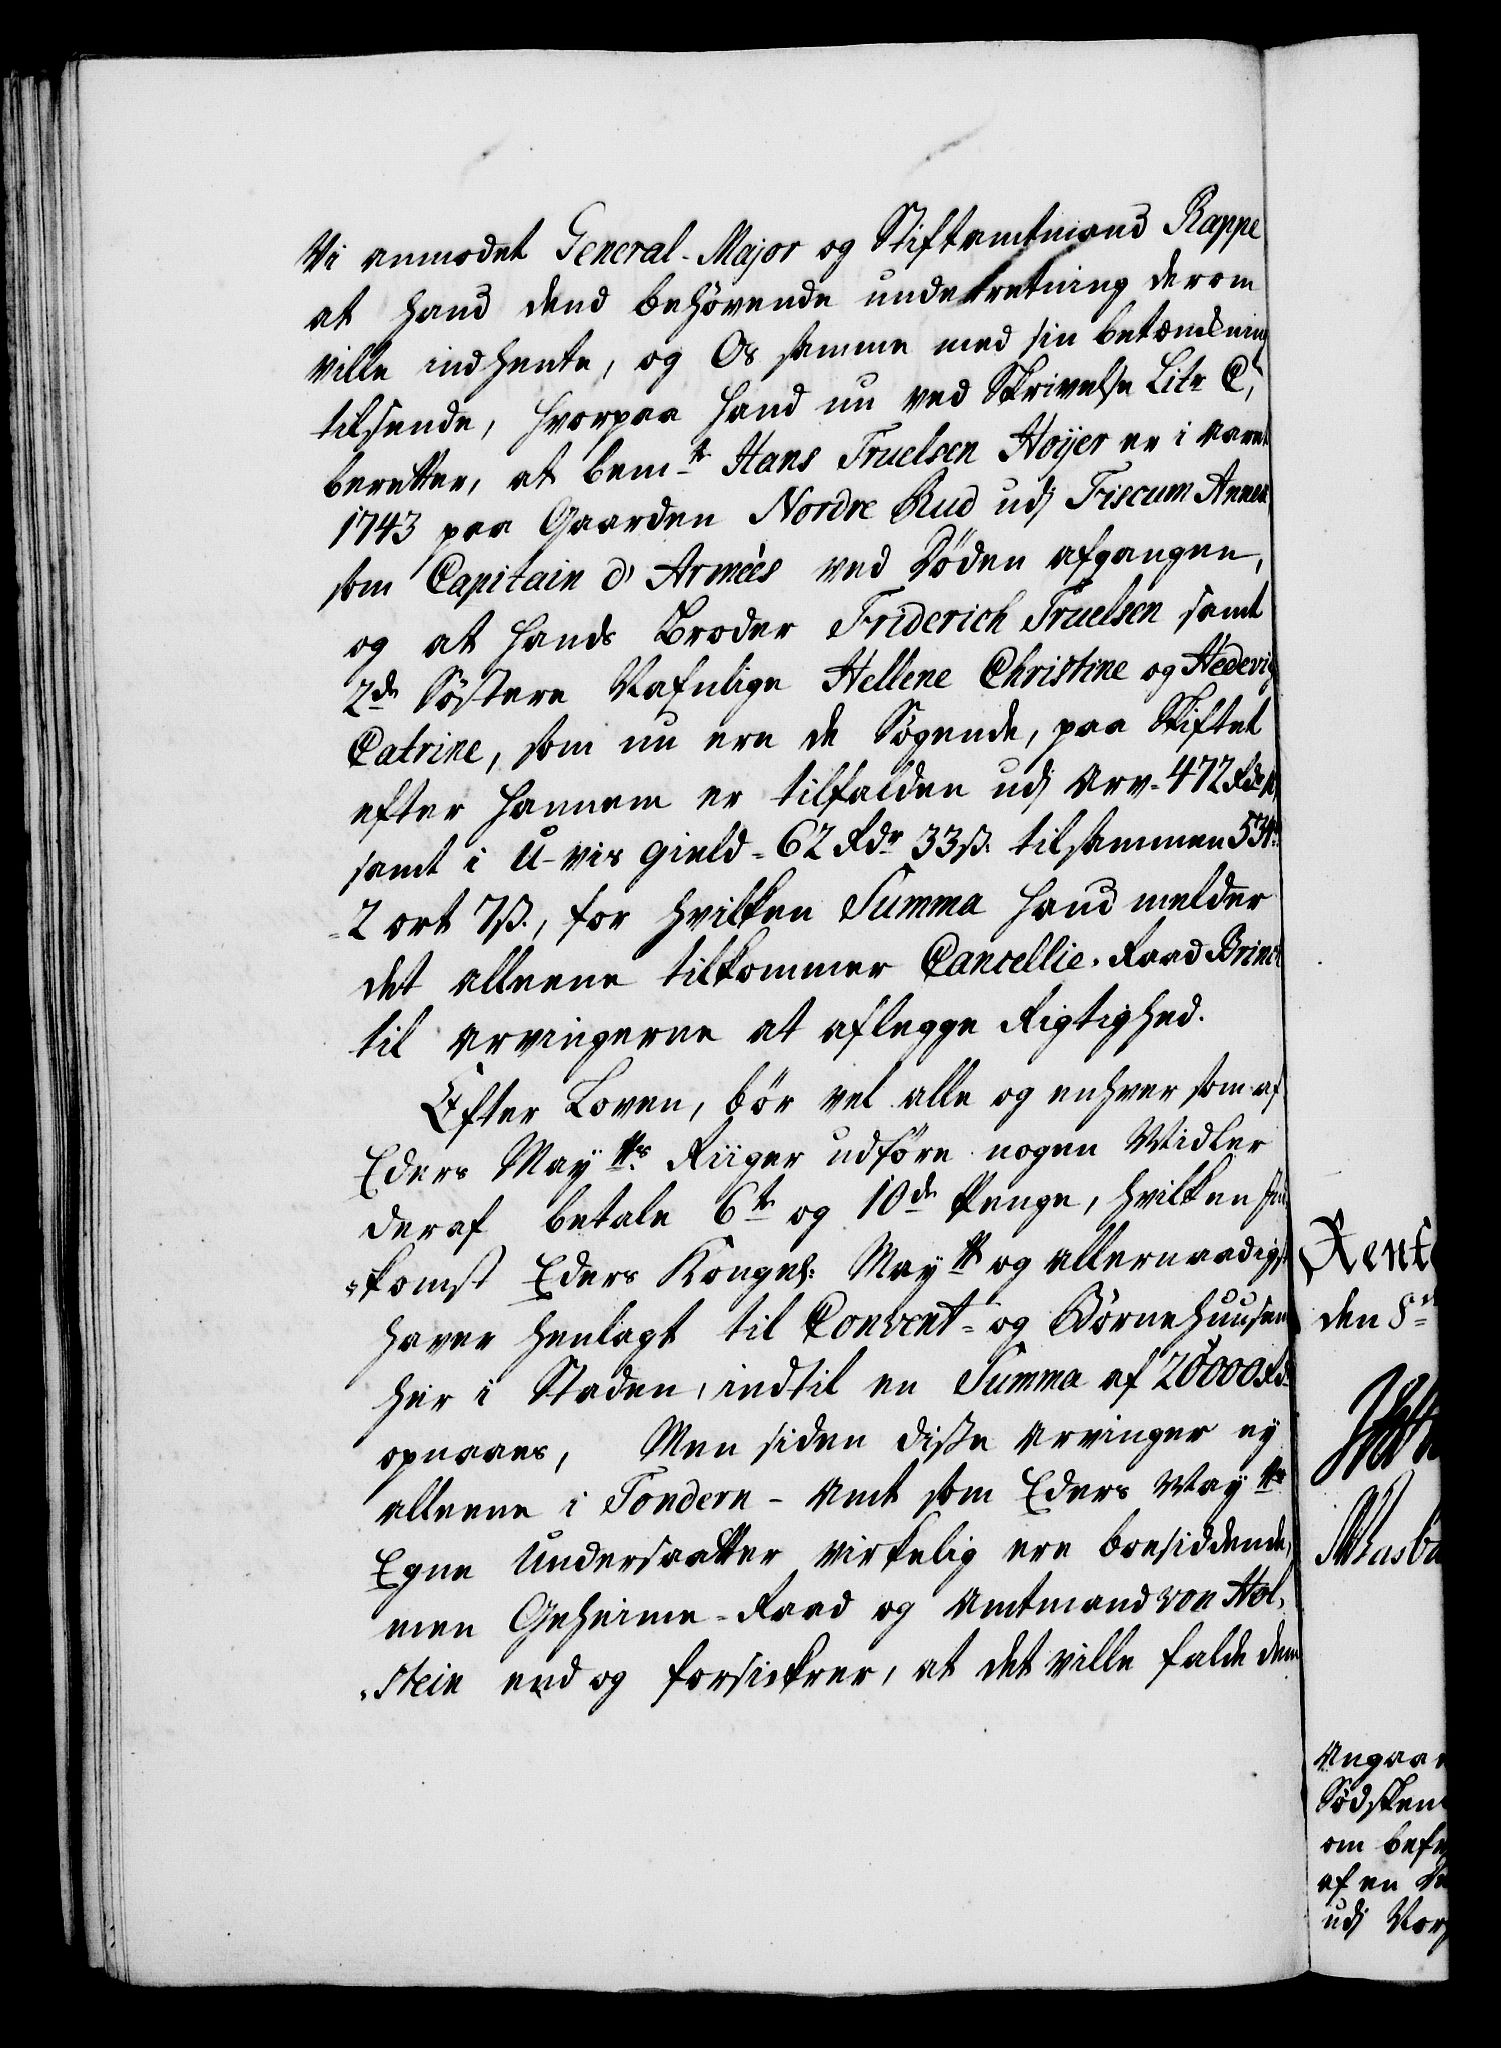 Vi anmodet General-Major og Stiftamtmand Rappe
at hand dend behövende underretning derom
ville indhente, og Os samme med sin betænkning
tilsende, hvorpaa hand nu ved Skrivelse Litr C,
beretter, at bem.te Hans Truelsen Hoÿer er i aaret
1743 paa Gaarden Nordre Rud udj Fiscum Annex
som Capitain d' Armèes ved Döden afgangen,
og at hands Broder Friderich Truelsen samt
2de Söstere Nafnlige Hellene Christine og Hedevig
Catrine, som nu ere de Sögende, paa Skiftet
efter hannem er tilfalden udj Arv- 472 Rdr
samt i U-vis gield = 62 Rdr 33 ß. tilsammen 534
= 2 ort 7ß., for hvilken Summa hand melder
det alleene tilkommer Cancellie-Raad Brinck
til arvingerne at aflegge Rigtighed.
Efter Loven, bör vel alle og enhver som af
Eders Maÿtts Riiger udföre nogen Midler
deraf betale 6te og 10de Penge, hvilken Ind
=komst Eders Kongel: Maÿtt og allernaadigst
haver henlagt til Convent- og Börnehuusene
her i Staden, indtil en Summa af 20000 Rdr
opnaaes, Men siden disse Arvinger ey
alleene i Tondern - Amt som Eders Maÿtts
Egne Undersaatter virkelig ere boesiddende,
men Geheime-Raad og Amtmand von Hol-
=stein end og forsickrer, at det ville falde dem
Rente
den 8
Angaa
Södsken
om befr
af en
udj Nor